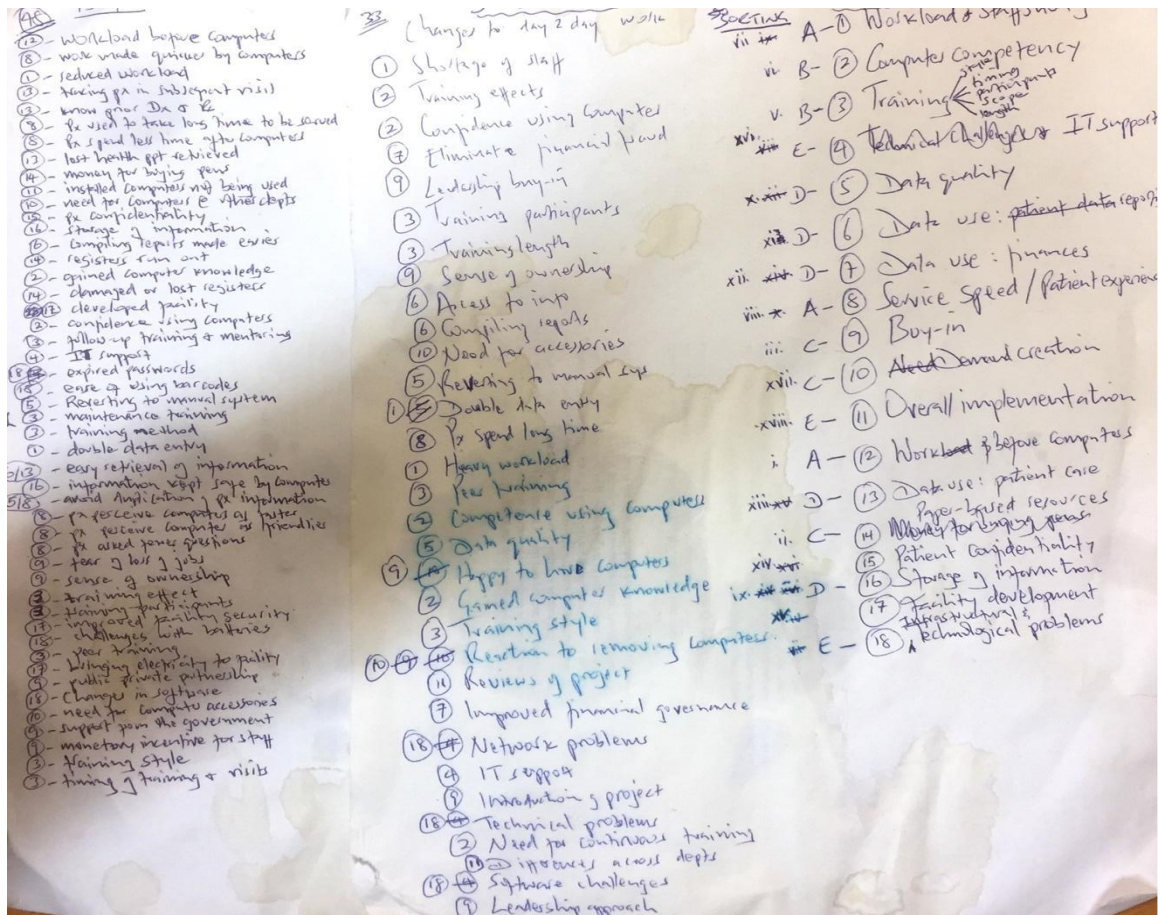 48
(12) - workload before computers
(8) - work made quicker by computers
(1) - reduced workload
(13) - tracing px in subsequent visits
(13) - know prior Dx & Rx
(8) - Px used to take long time to be served
(8) - Px spend less time after computers
(13) - lost health ppt retrieved
(14) - money for buying pens
(11) - installed computers not being used
(10) - need for computers @ other depts
(15) - px confidentiality
(16) - storage of information
(6) - compiling reports made easier
(14) - registers run out
(2) - gained computer knowledge
(14) - damaged or lost registers
(17) - developed facility
(2) - confidence using computers
(3) - follow-up training & mentoring
(4) - IT support
(18) - expired passwords
(18) - ease of using barcodes
(5) - Reverting to manual system
(3) - maintenance training
(3) - training method
(1) - double data entry
/13) - easy retrieval of information
(16) - information kept safe by computer
5/8) - avoid duplication of px information
(8) - px perceive computers as faster
(8) - px perceive computer as friendlier
(8) - px asked fewer questions
(9) - fear of loss of jobs
(9) - sense of ownership
(3) - training effect
(3) - training participants
(17) - improved facility security
(18) - challenges with batteries
(3) - peer training
(17) - bringing electricity to facility
(9) - public private partnership
(18) - Changes in software
(10) - need for computer accessories
(9) - support from the government
(9) - monetary incentive for staff
(3) - training style
(3) - timing of training & visits
33
Changes to day 2 day work
(1) Shortage of staff
(2) Training effects
(2) Confidence using computer
(7) Eliminate financial fraud
(9) Leadership buy-in
(3) Training participants
(3) Training length
(9) Sense of ownership
(6) Access to info
(6) Compiling reports
(10) Need for accessories
(5) Reverting to manual sys
(1) Double data entry
(8) Px spend long time
(1) Heavy workload
(3) Peer training
(2) Competence using computers
(5) Data quality
(9) Happy to have computers
(2) Gained computer knowledge
(3) Training style
(10) Reaction to removing computers
(11) Reviews of project
(7) Improved financial governance
(18) Network problems
(4) IT support
(9) Introduction of project
(18) Technical problems
(2) Need for continuous training
(11) Differences across depts
(18) Software challenges
(9) Leadership approach
SORTING
vii A - (1) Workload & staffing
vi. B - (2) Computer competency
v. B - (3) Training
style
timing
participants
scope
length
xvi. E - (4) Technical challenges & IT support
x. D - (5) Data quality
xi. D - (6) Data use: patient data
xii. D - (7) Data use: finances
viii. A - (8) Service speed / Patient experience
iii. C - (9) Buy-in
xvii. C - (10) Need Demand creation
xviii. E - (11) Overall implementation
i. A - (12) Work before computers
xiii D - (13) Data use: patient care
paper-based resources
ii. C - (14) Money for buying pens
xiv (15) Patient confidentiality
ix. D - (16) Storage of information
(17) Facility development
Infrastructural &
E - (18) technological problems